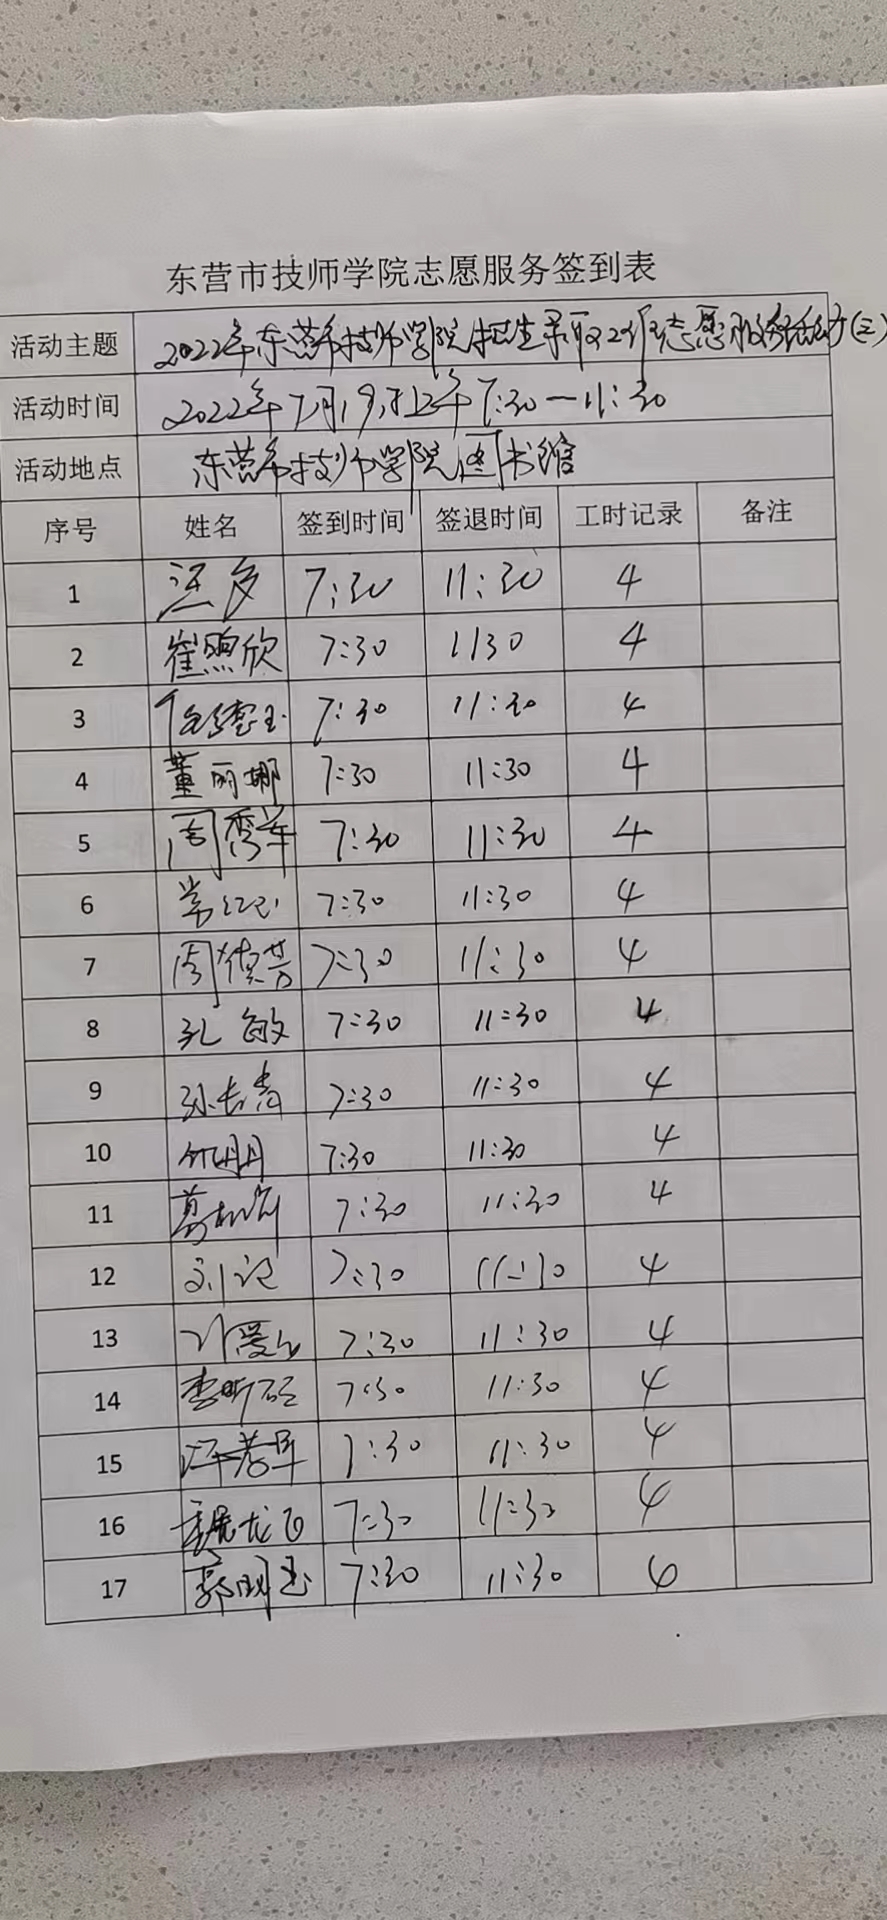 东营市技师学院志愿服务签到表
活动主题 2022年东营市技师学院招生录取工作志愿服务活动(三)
活动时间 2022年7月19日上午7:30—11:30
活动地点 东营市技师学院图书馆
序号 姓名 签到时间 签退时间 工时记录 备注
1 7:30 11:30 4
2 崔煦欣 7:30 1130 4
3 7:30 11:30 4
4 董丽娜 7:30 11:30 4
5 周秀军 7:30 11:30 4
6 常红玉 7:30 11:30 4
7 周德芳 7:30 11:30 4
8 孔敏 7:30 11:30 4
9 孙长青 7:30 11:30 4
10 7:30 11:30 4
11 7:30 11:30 4
12 7:30 11:30 4
13 7:30 11:30 4
14 李昕 7:30 11:30 4
15 7:30 11:30 4
16 魏龙飞 7:30 11:30 4
17 郭明玉 7:30 11:30 4